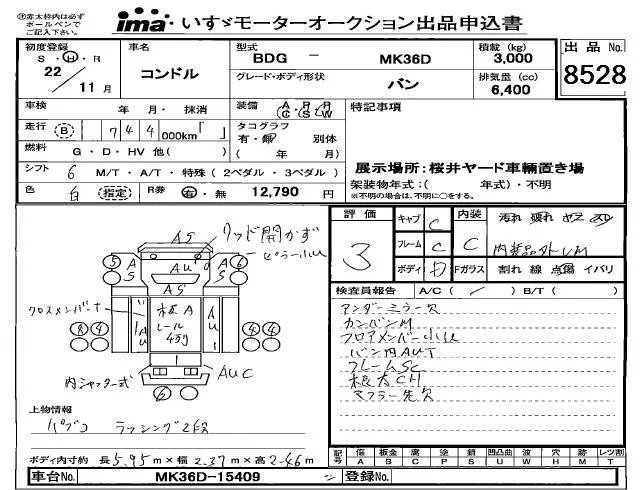 ㊟赤太枠内は必ず
ボールペンで
ご記入下さい。
ima いすゞモーターオークション出品申込書
初度登録
S・Ⓗ・R
22／11月
車名
コンドル
型式
BDG － MK36D
グレード・ボディ形状
バン
積載 (kg)
3,000
排気量 (cc)
6,400
出品 No.
8528
車検 年 月・抹消
走行 Ⓑ 744 000km「 」
燃料 G・D・HV 他( )
シフト 6 M/T・A/T・特殊 (2ペダル・3ペダル)
色 白 指定 R券 有・無 12,790 円
装備 A/C P/S P/W
タコグラフ
有・無 別体
( 年 月)
特記事項
展示場所:桜井ヤード車輌置き場
架装物年式:( 年式)・不明
※不明の場合は、不明に○をする。
評価 3
キャブ C 内装 C 汚れ 破れ ヤニ
フレーム C
ボディ D Fガラス 割れ 線 点傷 イバリ
検査員報告 A/C( ／ ) B/T( )
アンダーミラー欠
カンバンM
フロアメンバー小U
バン内AUT
フレームSC
根太CH
マフラー先欠
AS
ウッド開かず
ピラー小U
5 AS AU AS 6
AS
クロスメンバーT
8 4 AU 板A レール 4列 AU 4 4
内シャッター式
AUC
6
上物情報
パブコ ラッシング2段
ボディ内寸約 長5.95m×幅2.37m×高2.46m
記号 傷A 板金B 腐C 塗P 錆S 凹U 凹凸曲W 波H 穴 跡M レツ割T
車台No. MK36D-15409 シ 登録No.